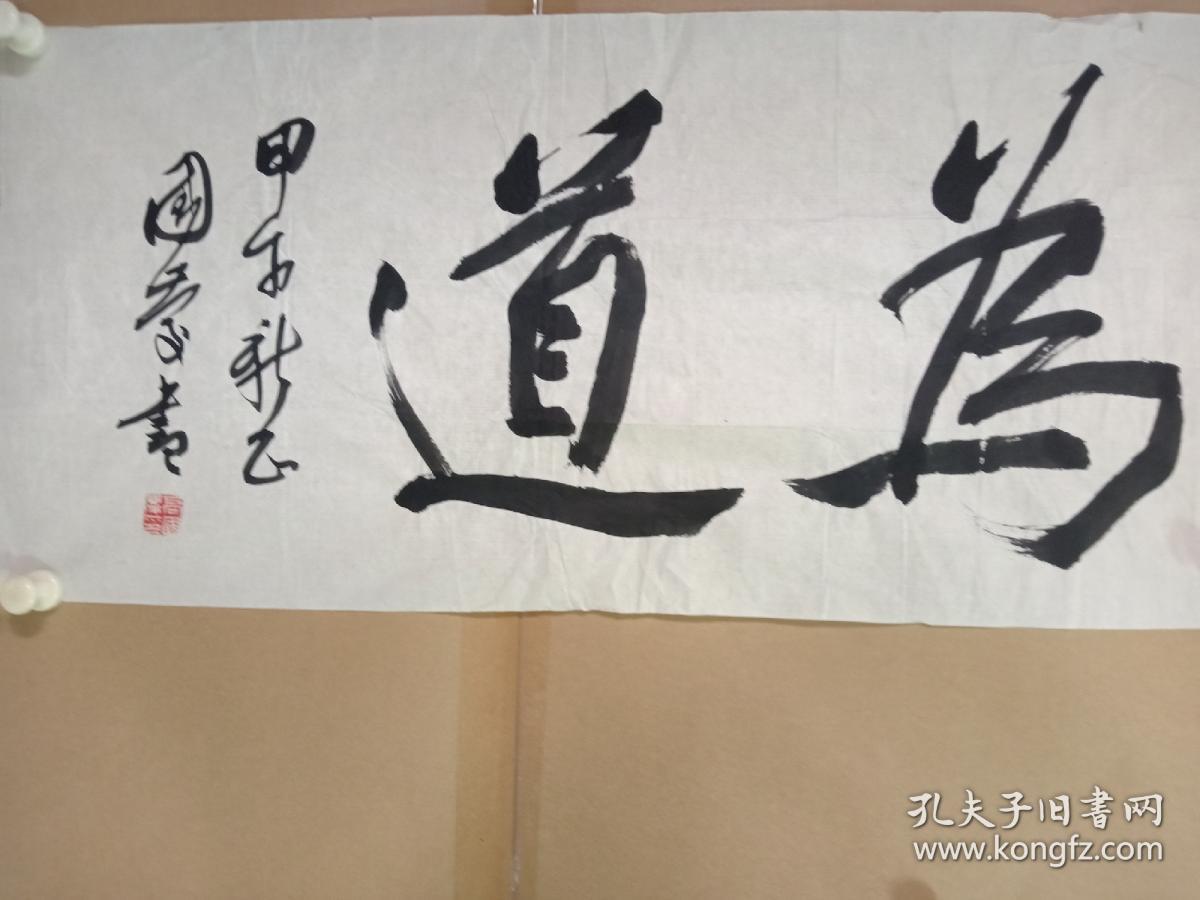 為道
甲午新正
國慶書
孔夫子旧書网
www.kongfz.com